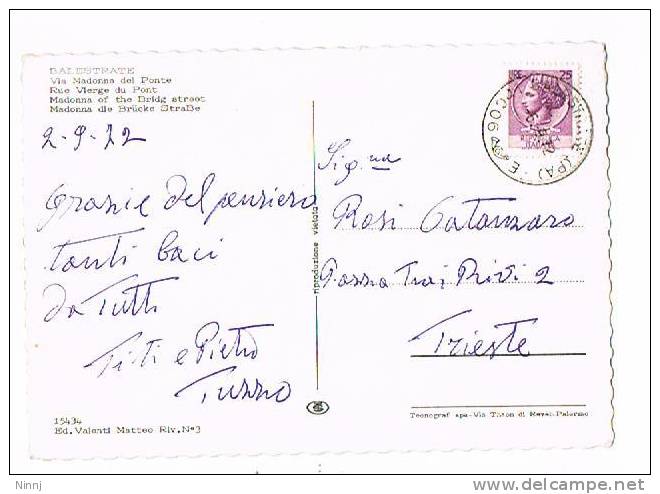 BALESTRATE
Via Madonna del Ponte
Rue Vierge du Pont
Madonna of the Bridg street
Madonna die Brücke Straße
2-9-72
Grazie del pensiero
tanti baci
da Tutti
Titi e Pietro
Tuzzo
15434
Ed. Valenti Matteo Riv. N°3
riproduzione vietata
25
(PA)
Sig.na
Rosi Catanzaro
2
Trieste
Tecnograf spa-Via Thaon di Revel-Palermo
Ninnj
delcampe.net